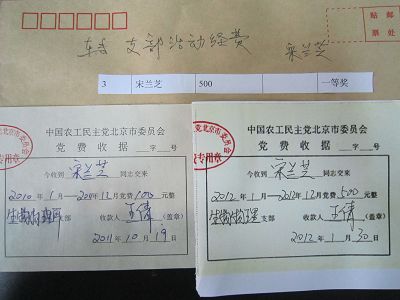 贴邮
票处
转 支部活动经费 宋兰芝
3 宋兰芝 500 一等奖
中国农工民主党北京市委员会
党费收据 字 号
今收到 宋兰芝 同志交来
2010年1月—2011年12月党费100元整
支部 收款人 王倩 (盖章)
2011年10月19日
专用章
中国农工民主党北京市委员会
党费收据 字 号
今收到 宋兰芝 同志交来
2012年1月—2012年12月党费500元整
支部 收款人 王倩 (盖章)
2012年1月30日
专用章